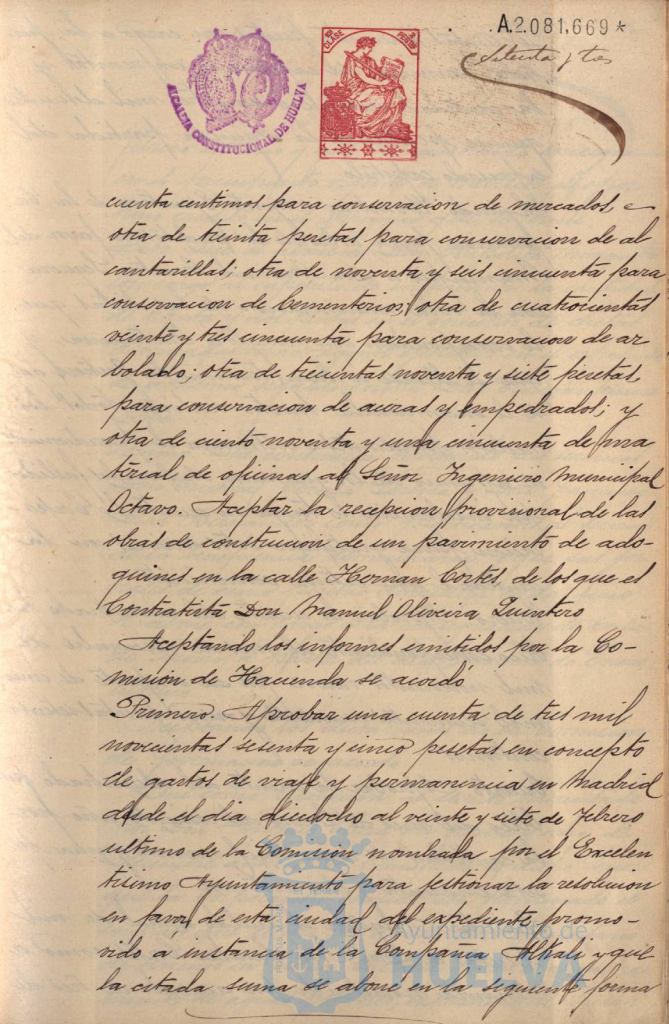 A.2.081.669*
Setenta y tres
ALCALDIA CONSTITUCIONAL DE HUELVA
CLASE
cuenta centimos para conservacion de mercados,
otra de treinta pesetas para conservacion de al
cantarillas; otra de noventa y seis cincuenta para
conservacion de Cementerios, otra de cuatrocientas
veinte y tres cincuenta para conservacion de ar
bolado; otra de trecientas noventa y siete pesetas,
para conservacion de aceras y empedrados; y
otra de ciento noventa y una cincuenta de ma
terial de oficinas al Señor Ingeniero Municipal
Octavo. Aceptar la recepcion provisional de las
obras de construcion de un pavimiento de ado-
quines en la calle Hernan Cortés, de los que es
Contratista Don Manuel Oliveira Quintero
Aceptando los informes emitidos por la Co-
mision de Hacienda se acordó
Primero. Aprobar una cuenta de tres mil
novecientas sesenta y cinco pesetas en concepto
de gastos de viaje y permanencia en Madrid
desde el dia dieciocho al veinte y siete de Febrero
ultimo de la Comisión nombrada por el Excelen
tisimo Ayuntamiento para gestionar la resolucion
en favor de esta ciudad del expediente promo-
vido á instancia de la Compañia Alkali y que
la citada suma se abone en la siguiente forma
Ayuntamiento de
HUELVA